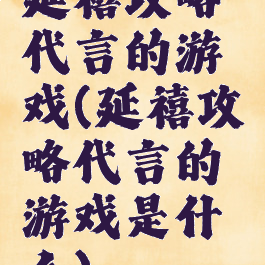 延禧攻略
代言的游
戏(延禧攻
略代言的
游戏是什
么)